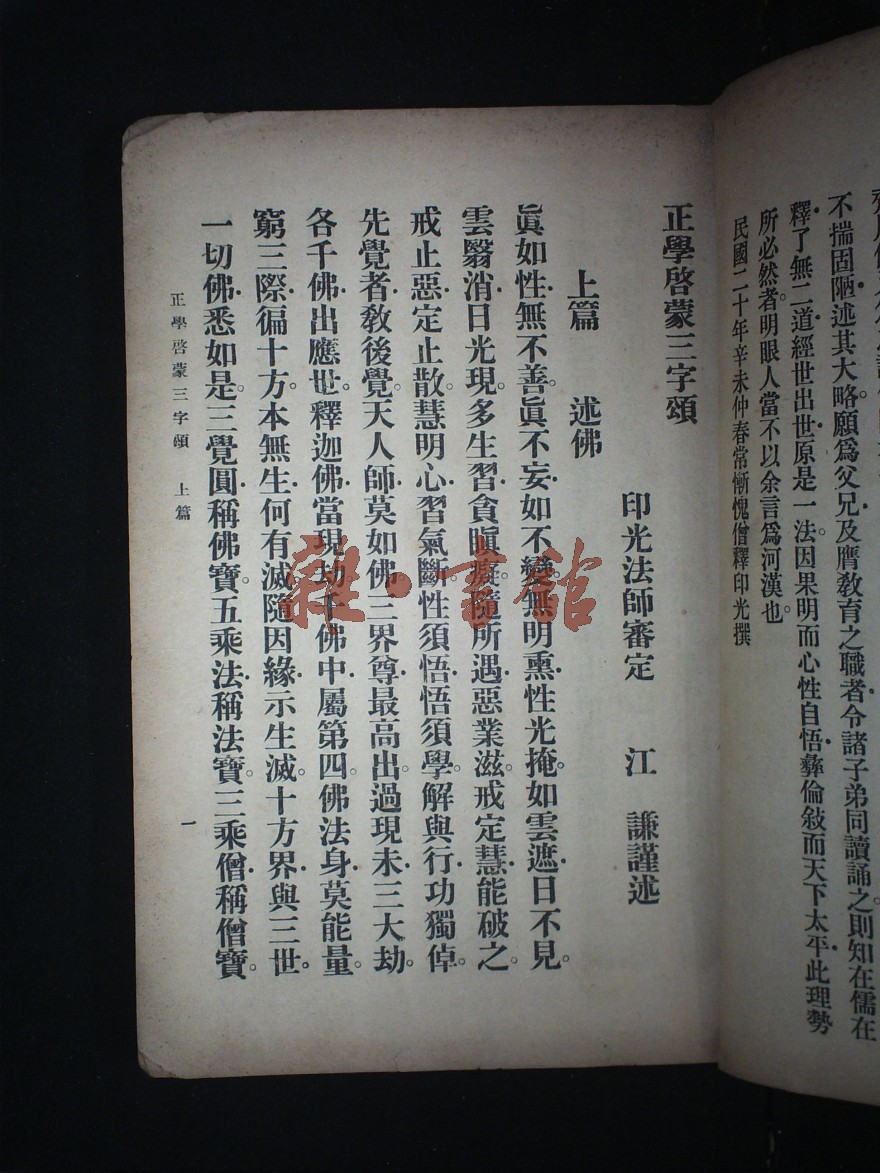 不揣固陋述其大略。願爲父兄及膺教育之職者令諸子弟同讀誦之則知在儒在
釋了無二道經世出世原是一法。因果明而心性自悟彝倫敍而天下太平此理勢
所必然者明眼人當不以余言爲河漢也。
民國二十年辛未仲春常慚愧僧釋印光撰
正學啓蒙三字頌
印光法師審定 江 謙謹述
上篇 述佛
眞如性·無不善。眞不妄·如不變。無明熏·性光掩。如雲遮·日不見。
雲翳消·日光現。多生習·貪瞋癡。隨所遇·惡業滋。戒定慧·能破之。
戒止惡·定止散·慧明心·習氣斷。性須悟·悟須學。解與行·功獨倬。
先覺者·教後覺。天人師·莫如佛。三界尊·最高出。過現未·三大劫·
各千佛·出應世。釋迦佛·當現劫·千佛中·屬第四。佛法身·莫能量。
窮三際·徧十方。本無生·何有滅。隨因緣·示生滅。十方界·與三世。
一切佛·悉如是。三覺圓·稱佛寶。五乘法·稱法寶。三乘僧·稱僧寶。
正學啓蒙三字頌 上篇
一
雜·書館